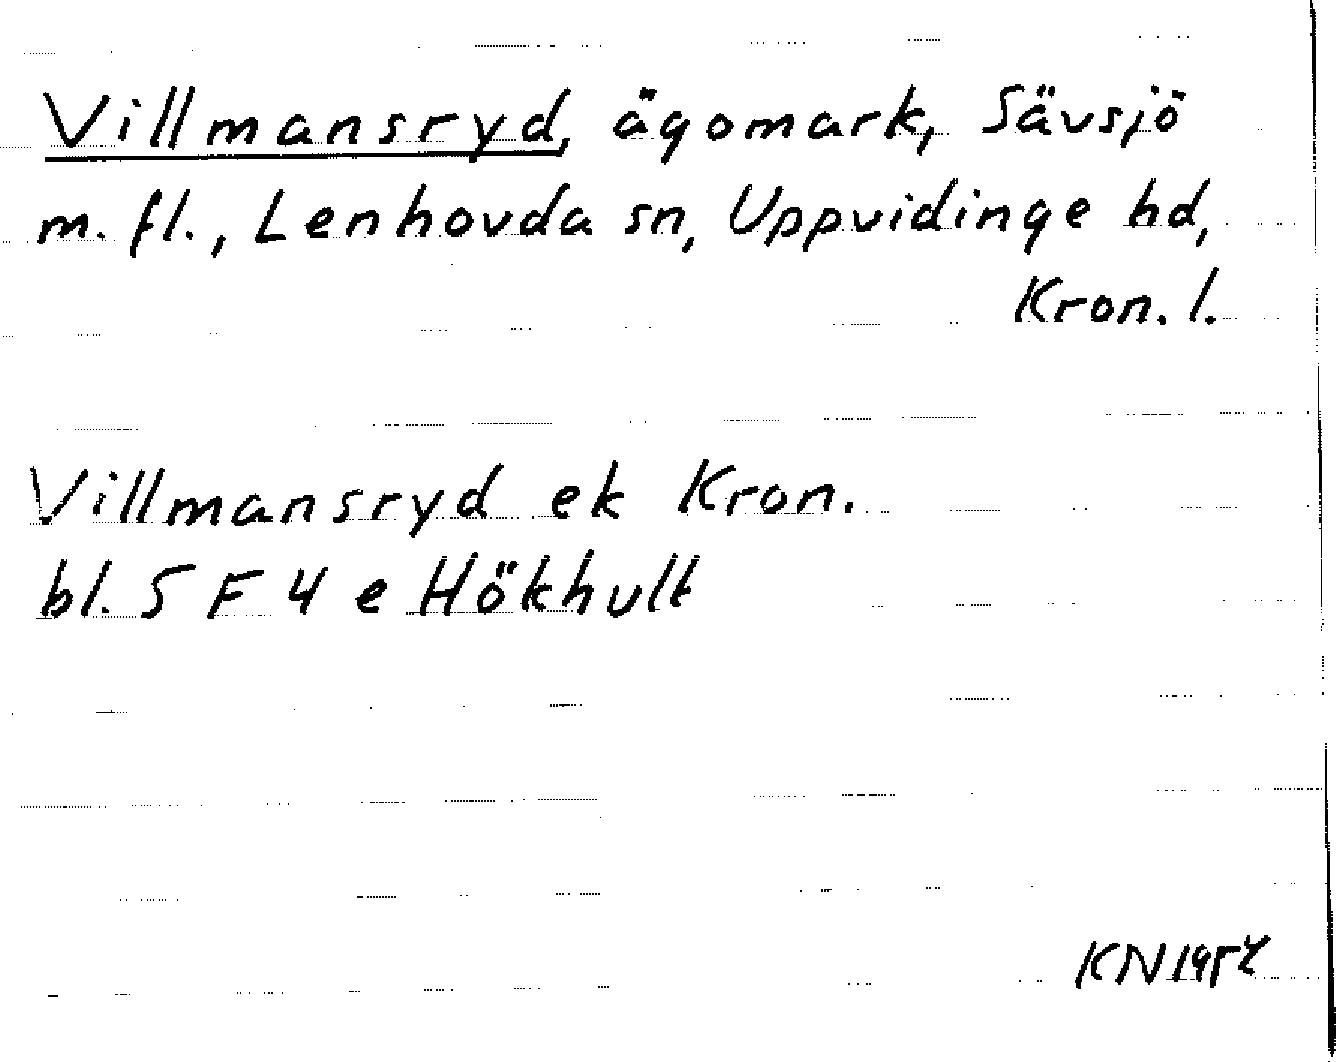 Villmansryd, ägomark, Sävsjö
m. fl., Lenhovda sn, Uppvidinge hd,
Kron. l.
Villmansryd ek Kron.
bl. 5 F 4 e Hökhult
KN 1954